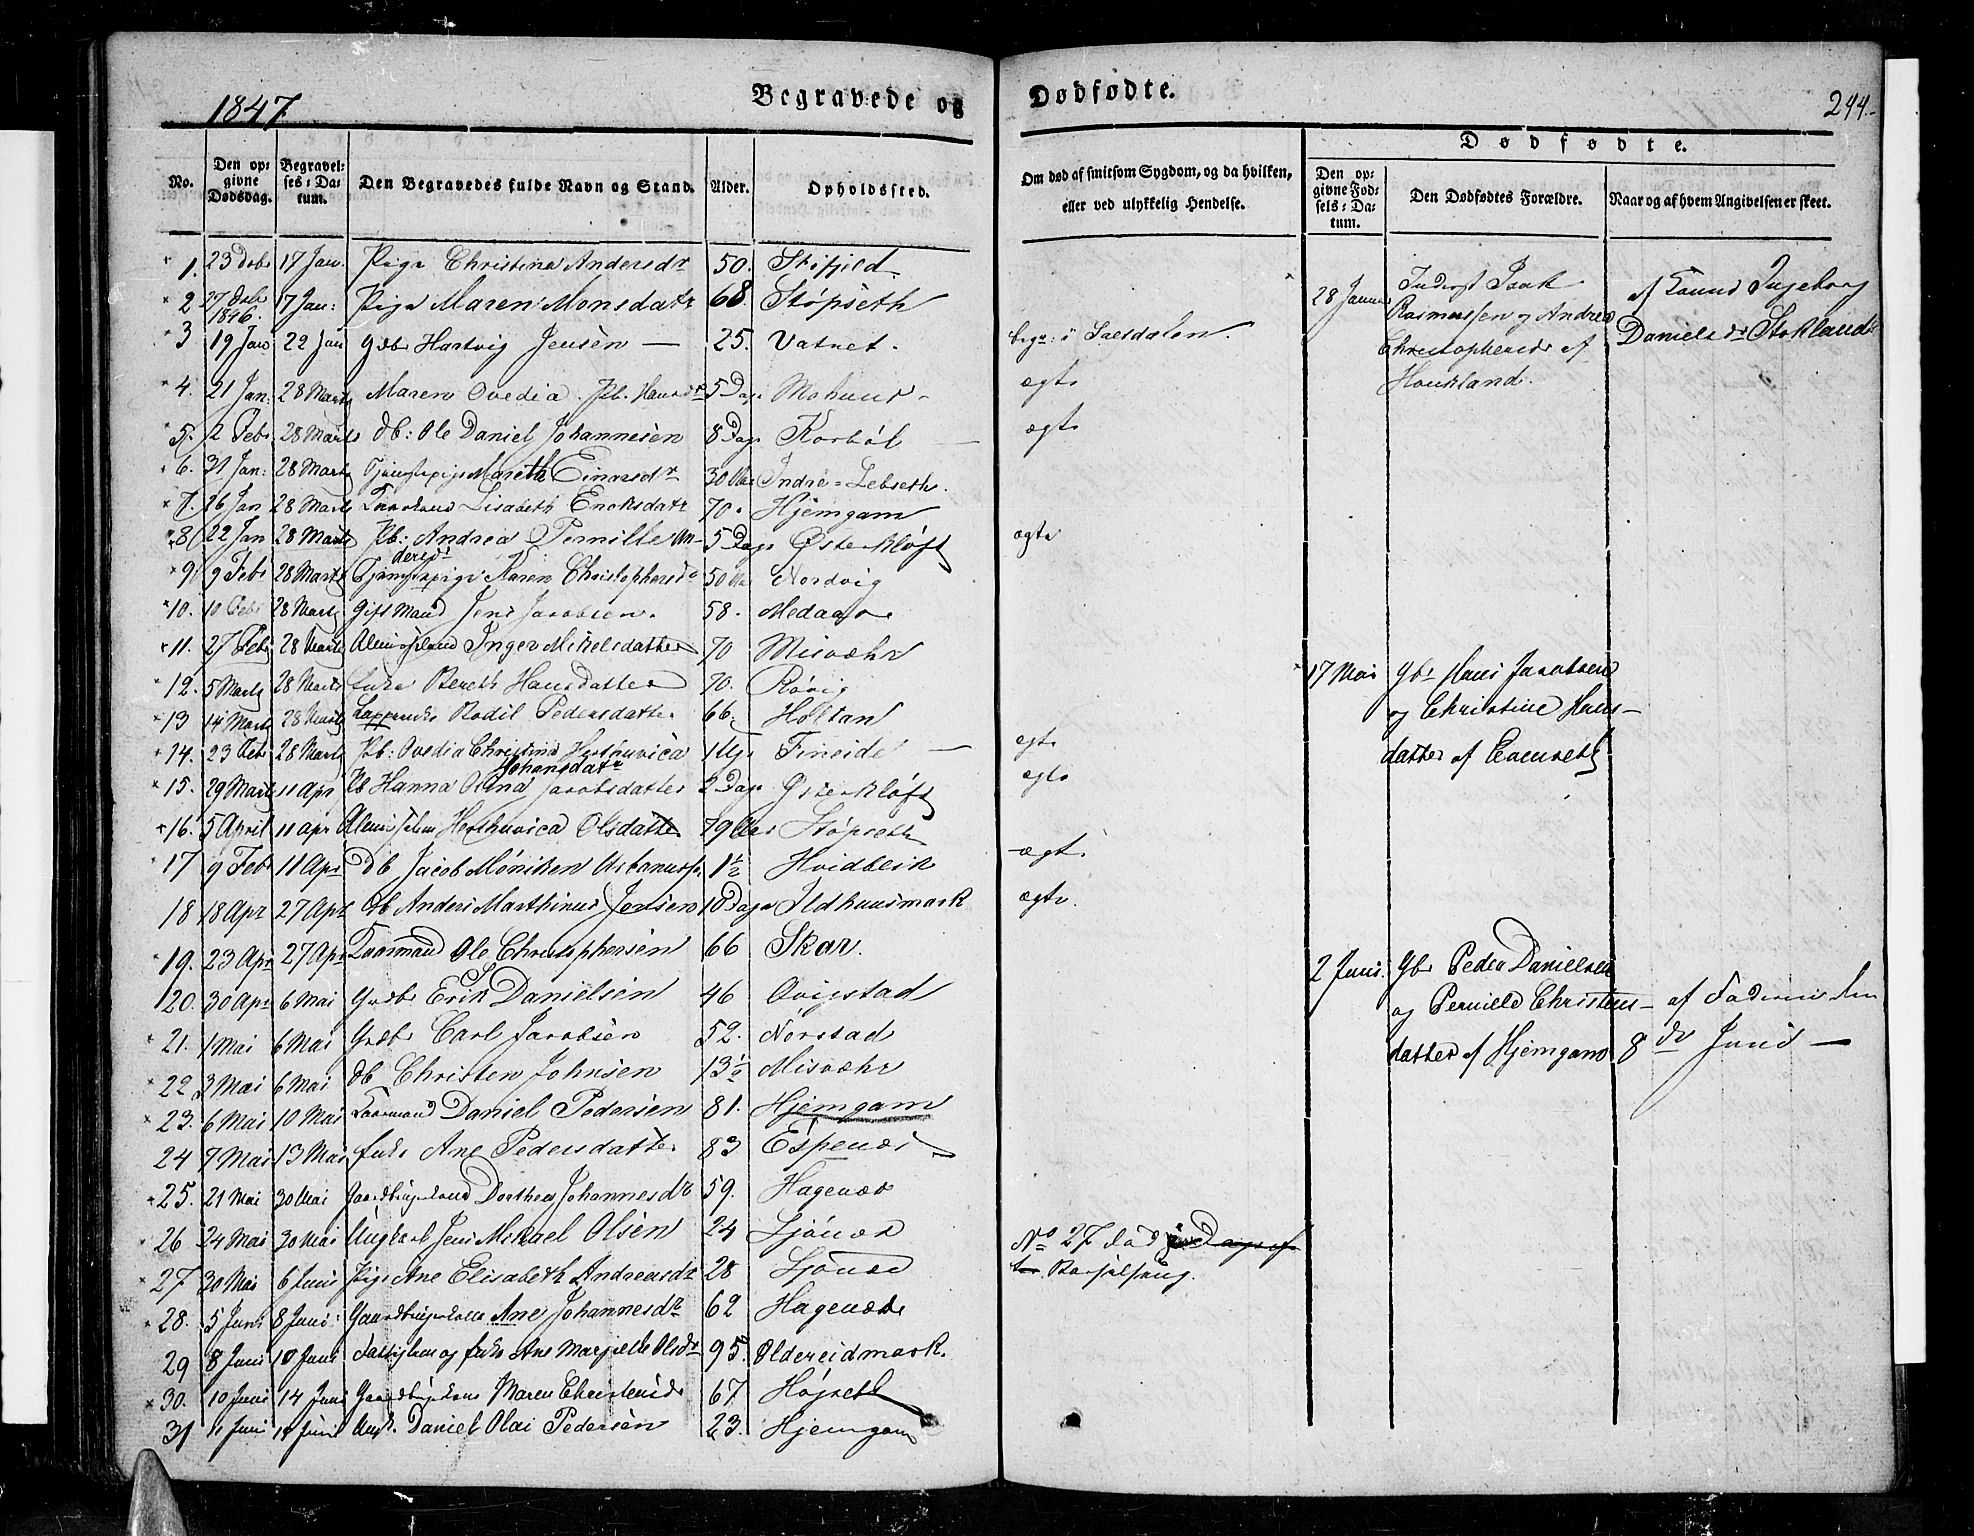 1847
Begravede og Dødfødte.
244.
No.
Den opgivne Dødsdag.
Begravelses-Datum.
Den Begravedes fulde Navn og Stand.
Alder.
Opholdssted.
Om død af smitsom Sygdom, og da hvilken, eller ved ulykkelig Hendelse.
Dødfødte.
Den opgivne Fødsels-Datum.
Den Dødfødtes Forældre.
Naar og af hvem Angivelsen er skeet.
1. 23 Dcbr 17 Jan. Pige Christina Andersdr 50. Støfjeld
2 27 Dcbr 1846. 17 Jan: Pige Maren Monsdatr 68. Støpseth
3 19 Jan 22 Jan Gdbr Hartvig Jensen — 25. Vatnet. begr: i Salsdalen.
4. 21 Jan: 28 Marts Maren Ovedia Pb. Hansdr 5 Dage ægte
5. 2 Feb 28 Marts Db: Ole Daniel Johannesen 8 Dage Korbøl ægte
6. 31 Jan: 28 Marts Tjenestepige Mareth Einarsdr 30 Aar Indre-Lebseth.
7. 26 Jan 28 Marts Lisabeth Enoksdatr 70. Hjemgam
8 22 Jan 28 Marts Pb: Andrea Pernille Andersdr 5 Dage Østerkløft ægte
9 9 Feb 28 Marts Tjenestepige Karen Christophersdr 50 Aar Nordvig
10. 10 Feb 28 Marts Gift Mand Jens Jacobsen. 58. Medaae
11. 27 Feb 28 Marts Inger Mikelsdatter 70 Misvæhr
12. 5 Marts 28 Marts Enke Bereth Hansdatter 70. Røvig
13 14 Marts 28 Marts Lappeenke Bodil Pedersdatter 66. Holtan
14. 23 Feb 28 Marts Pb: Ovedia Christina Herthuvica Johansdatr 1 Uge Fineide — ægte
15. 29 Marts 11 Apr Pb Hanna Olina Jacobsdatter 2 Dage Østerkløft ægte
16. 5 April 11 Apr Herthuvica Olsdatter 79 Aar Støpseth
17 9 Feb 11 Apr Db Jacob Møniken 1½ Hvidblik ægte
18 18 Apr 27 Apr Db Anders Marthinus Jensen 10 Dage Ildhuusmark ægte.
19. 23 Apr 27 Apr Kaarmand Ole Christophersen 66 Skar.
20. 30 Apr 6 Mai Grdbr Erik Danielsen 46 Øvigstad
21. 1 Mai 6 Mai Grdbr Carl Jacobsen 52. Norstad
22 3 Mai 6 Mai Db Christen Johnsen 13½ Misvæhr
23. 6 Mai 10 Mai Kaarmand Daniel Pedersen 81. Hjemgam
24 7 Mai 13 Mai Enke Ane Pedersdatter 83 Espenæs
25. 21 Mai 30 Mai Gaardbrugerkone Dorthea Johannesdr 59. Hagenæs
26 24 Mai 30 Mai Ungkarl Jens Mikael Olsen 24 Ljønæs
27 30 Mai 6 Juni Pige Ane Elisabeth Andreasdr 28 Ljønæs
No 27 død Barselseng.
28. 5 Juni 8 Juni Ane Johannesdr 62 Hagenæs
29 8 Juni 10 Juni Fattiglem og Enke Ane Margrethe Olsdr 95. Oldereidmark.
30. 10 Juni 14 Juni Gaardbrugerkone Maren Christensdr 67 Højseth
31 11 Juni 14 Juni Ungk. Daniel Olai Pedersen 23. Hjemgam
28 Januar Inderst Isak
Rasmussen og Andrea
Christophersdr af
Houkland.
af Ingeborg
Danielsdr Stokland
17 Mai Gbr Hans Jacobsen
og Christine Hans-
datter af
2 Juni. Gbr Peder Danielsen
og Pernille Christens-
datter af Hjemgam
af Faderen den
8de Juni —